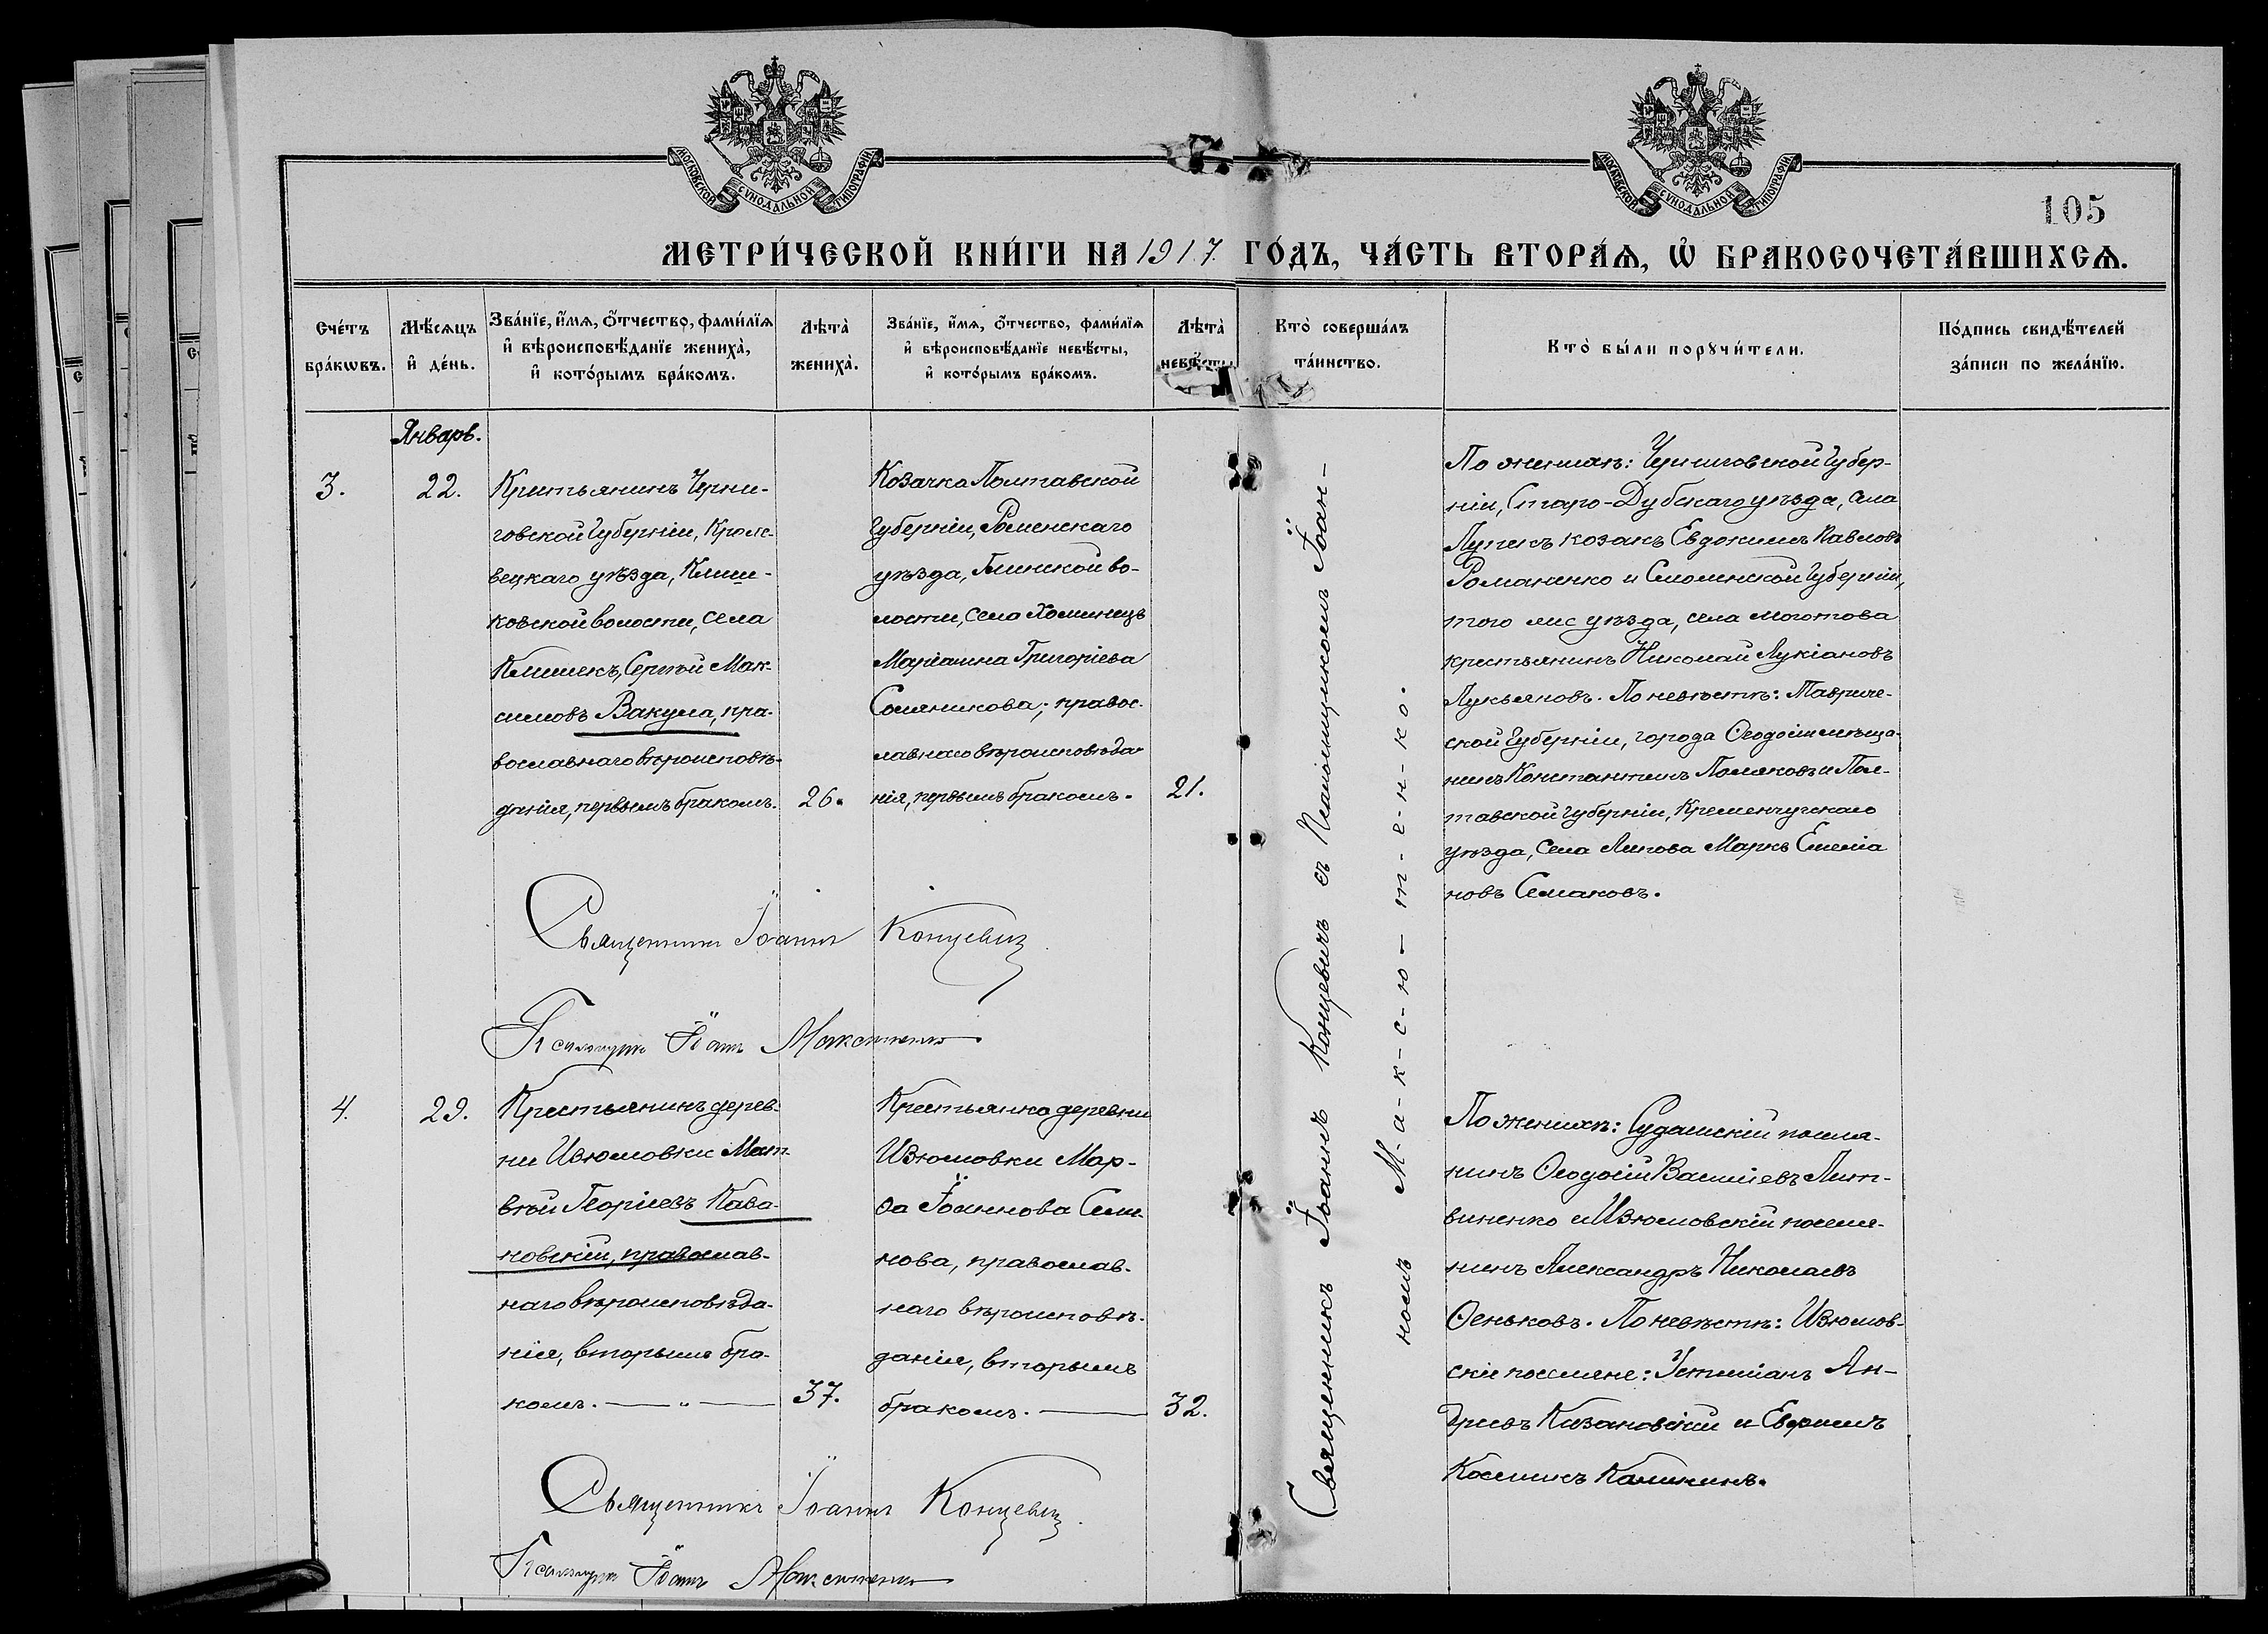 МОСКОВСКОЙ СѴНОДАЛЬНОЙ ТИПОГРАФІИ.
МОСКОВСКОЙ СѴНОДАЛЬНОЙ ТИПОГРАФІИ.
105
МЕТРИ́ЧЕСКОЙ КНИ́ГИ НА 1917. ГО́ДЪ, ЧА́СТЬ ВТОРА́Ѧ, Ѡ҆ БРАКОСОЧЕТА́ВШИХСѦ.
Сче́тъ
бра́кѡвъ.
Мѣ́сѧцъ
и҆ де́нь.
Зва́нїе, и҆́мѧ, ѻ҆́тчество, фами́лїѧ
и҆ вѣроисповѣ́данїе жениха̀,
и҆ кото́рымъ бра́комъ.
Лѣта̀
жениха̀.
Зва́нїе, и҆́мѧ, ѻ҆́тчество, фами́лїѧ
и҆ вѣроисповѣ́данїе невѣ́сты,
и҆ кото́рымъ бра́комъ.
Лѣта̀
невѣ́сты
Кто̀ соверша́лъ
та́инство.
Кто̀ бы́ли порꙋчи́тели.
По́дпись свидѣ́телей
за́писи по жела́нїю.
Январь.
3.
22.
Крестьянинъ Черни-
говской Губерніи, Кроле-
вецкаго уѣзда, Клиш-
ковской волости, села
Клишекъ, Сергѣй Мак-
симовъ Вакула, пра-
вославнаго вѣроисповѣ-
данія, первымъ бракомъ.
26.
Козачка Полтавской
Губерніи, Роменскаго
уѣзда, Глинской во-
лости, села Хоминецъ
Маріанна Григоріева
Соляникова; правос-
лавнаго вѣроисповѣда-
нія, первымъ бракомъ.
21.
Священникъ Іоаннъ Концевичъ съ Псаломщикомъ Іоан-
номъ М-а-к-с-ю-т-е-н-к-о.
По женихѣ: Черниговской Губер-
ніи, Старо-Дубскаго уѣзда, села
козакъ Евдокимъ Павловъ
Романенко и Смоленской Губерніи,
того же уѣзда, села
крестьянинъ Николай Лукіановъ
Лукьяновъ. По невѣстѣ: Тавриче-
ской Губерніи, города Ѳеодосіи мѣща-
нинъ Константинъ Поляковъ и Пол-
тавской Губерніи, Кременчугскаго
уѣзда, села Липова Маркъ Емеліа
новъ Семаковъ.
Священникъ Іоаннъ Концевичъ
Псаломщикъ Іоаннъ Максютенко
4.
29.
Крестьянинъ дерев-
ни Изюмовки Мат-
вѣй Георгіевъ Каза-
новскій, православ-
наго вѣроисповѣда-
нія, вторымъ бра-
комъ. — „ —
37.
Крестьянка деревни
Изюмовки Мар-
ѳа Іоаннова Семе-
нова, православ-
наго вѣроисповѣ-
данія, вторымъ
бракомъ. —
32.
По женихѣ: Судакскій поселя-
нинъ Ѳеодосій Васильевъ Лит-
виненко и Изюмовскій поселя-
нинъ Александръ Николаевъ
Ѳеньковъ. По невѣстѣ: Изюмов-
скіе поселяне: Ан-
дреевъ Казановскій и Евфимъ
Косминъ Каликинъ.
Священникъ Іоаннъ Концевичъ.
Псаломщикъ Іоаннъ Максютенко